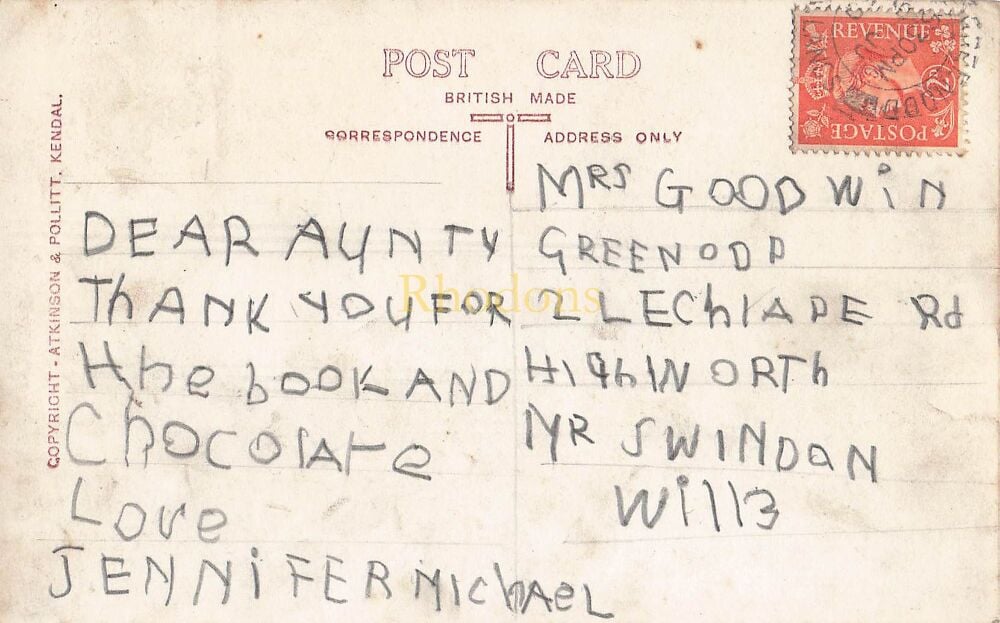 POST CARD
BRITISH MADE
CORRESPONDENCE
ADDRESS ONLY
COPYRIGHT - ATKINSON & POLLITT, KENDAL.
REVENUE
POSTAGE
DEAR AUNTY
ThANK YOU FOR
Hhe bOOK AND
ChOCOlATe
Love
JENNiFER MichAeL
MRS GOODWiN
GREENODD
2 LEChlADE Rd
HIGhWORTh
NR SWINDON
Will3
Rhodons